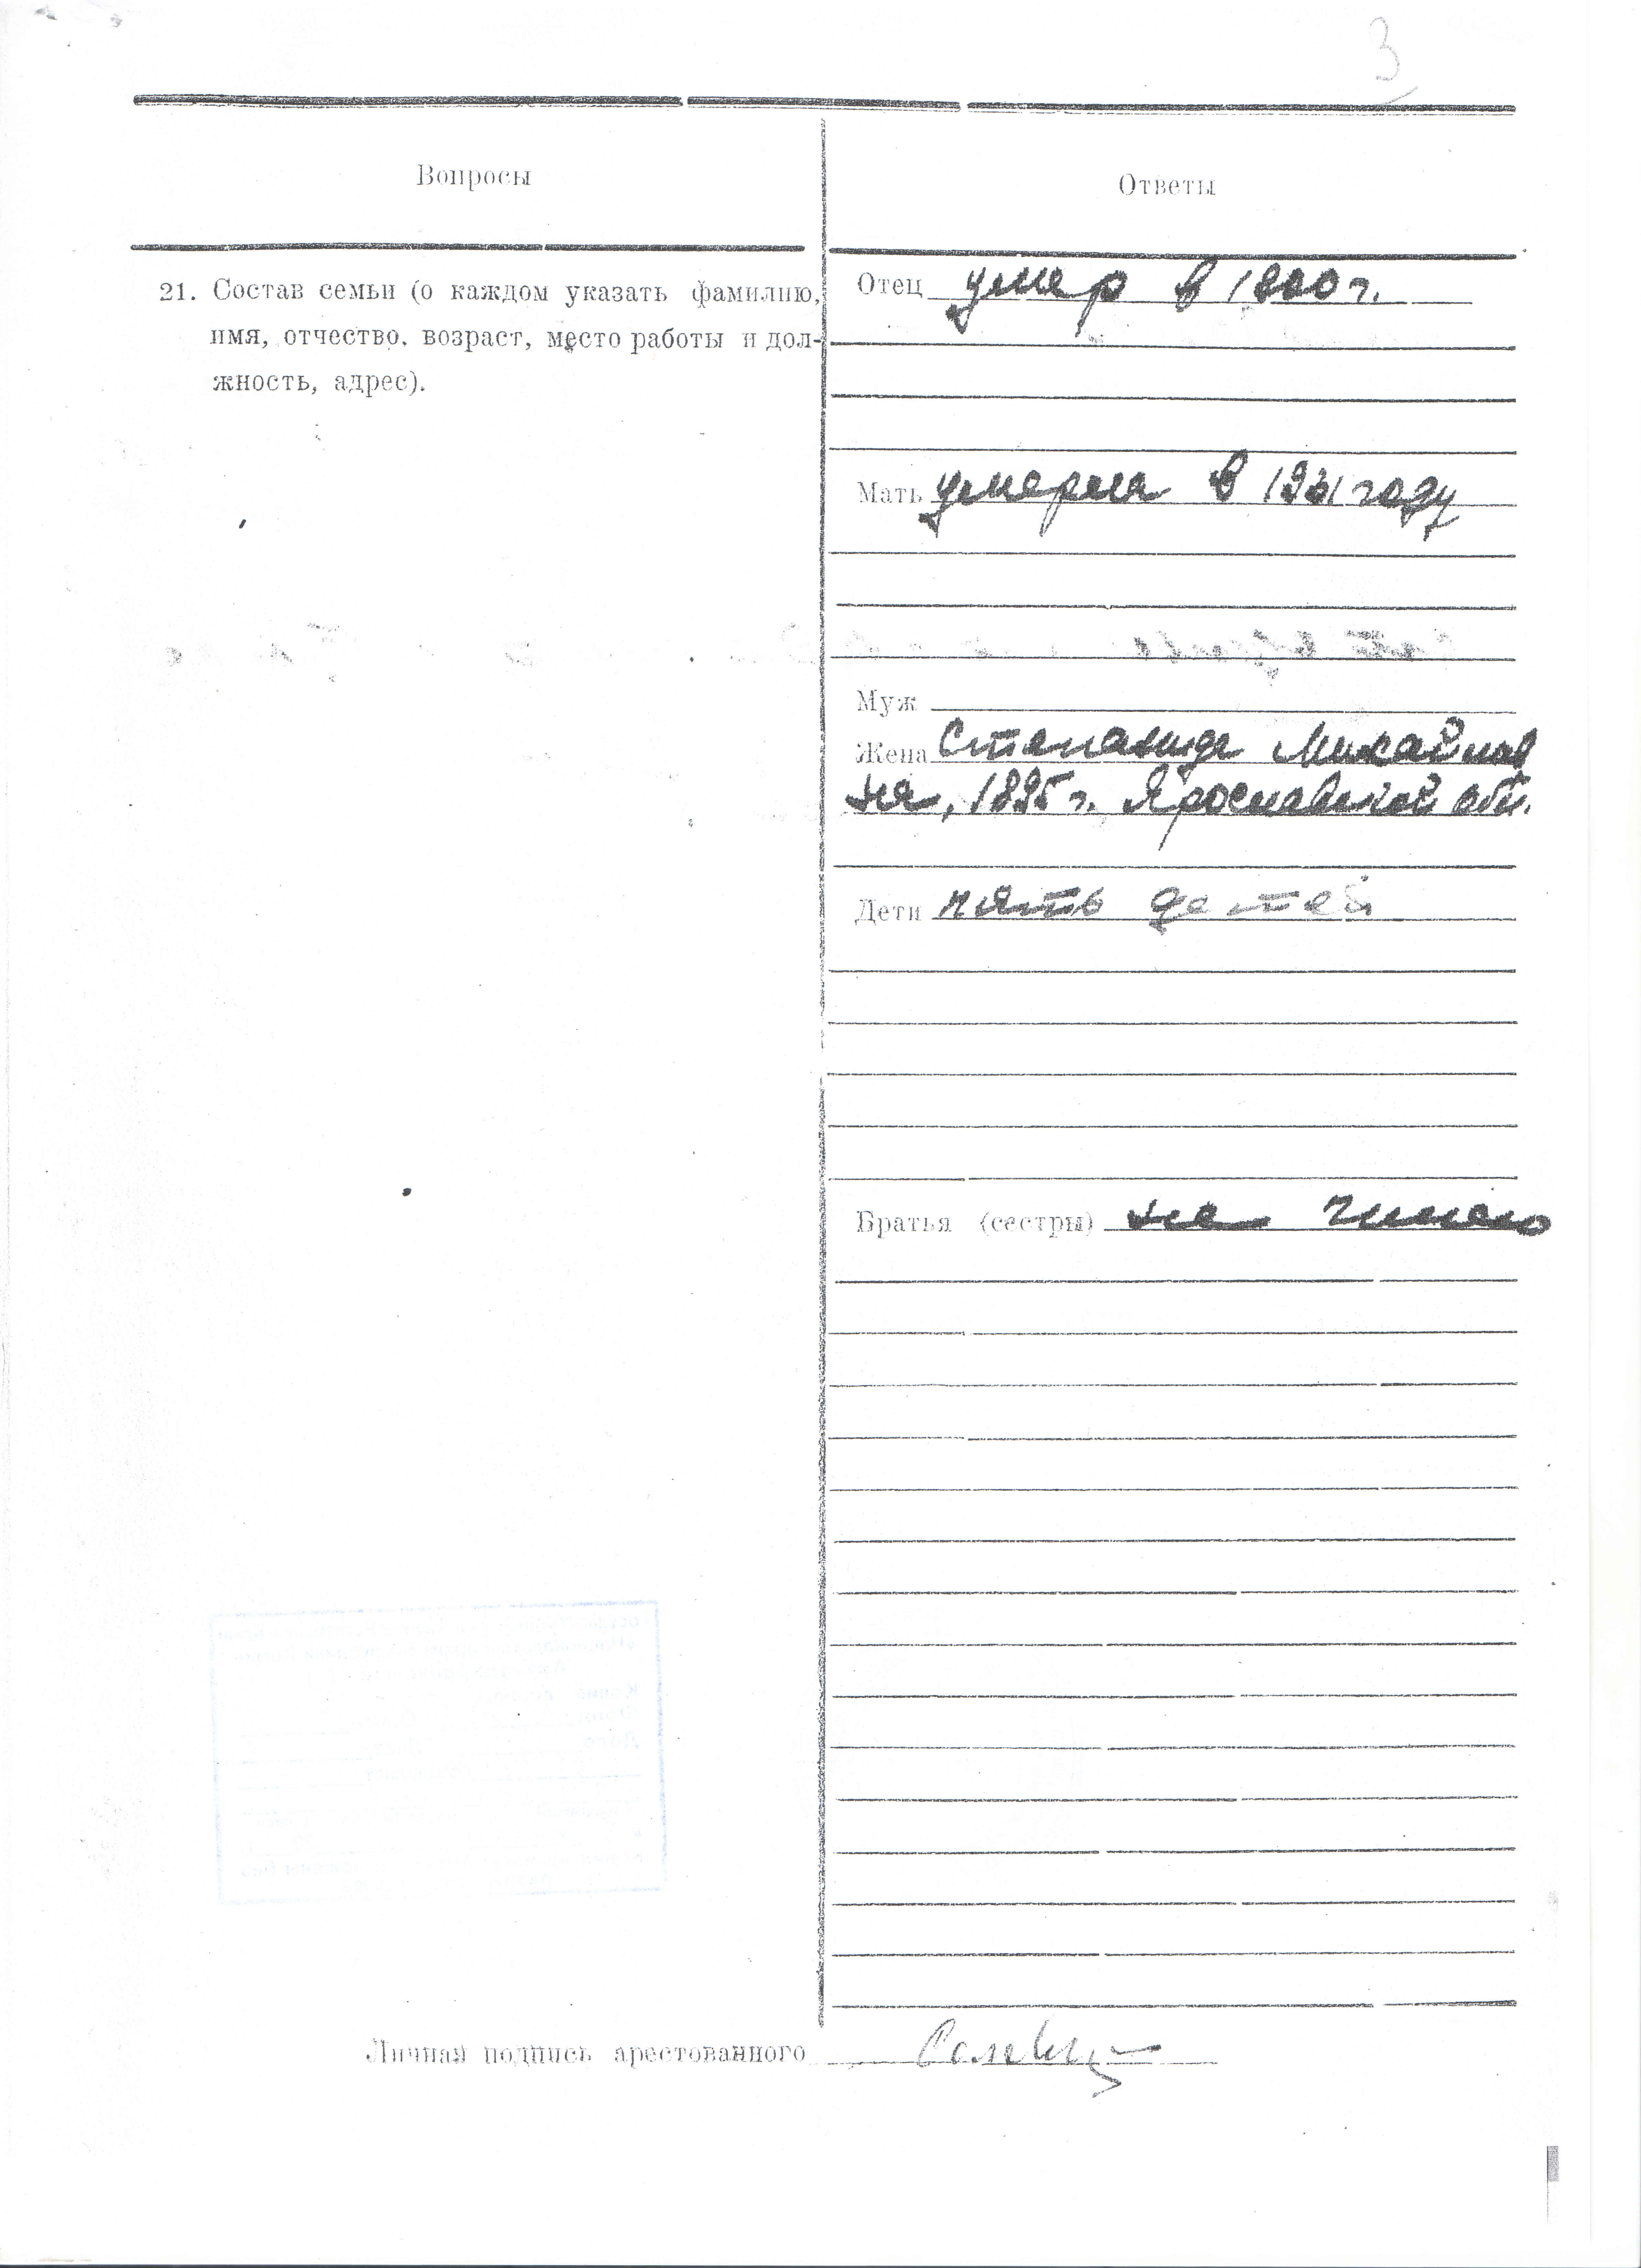 3
Вопросы
Ответы
21. Состав семьи (о каждом указать фамилию,
имя, отчество, возраст, место работы и дол-
жность, адрес).
Отец умер в 1900 г.
Мать умерла в 1931 году
Муж
Жена Степанида Михайлов
на, 1895 г. Ярославской обл.
Дети пять детей
Братья (сестры) не имею
Личная подпись арестованного